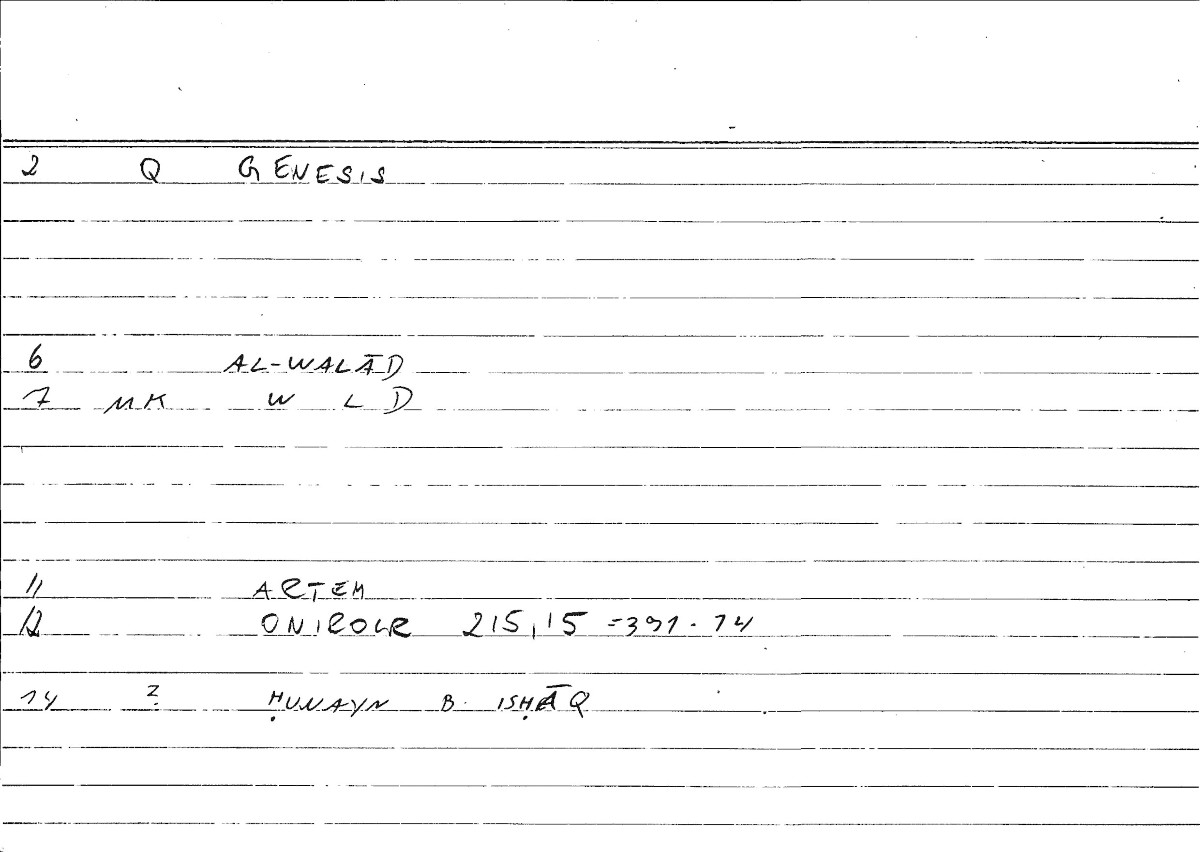 2 Q GENESIS
6 AL-WALĀD
7 MK W L D
11 ARTEM
12 ONIROCR 215,15 =391.14
14 Ẓ ḤUNAYN B. ISḤĀQ